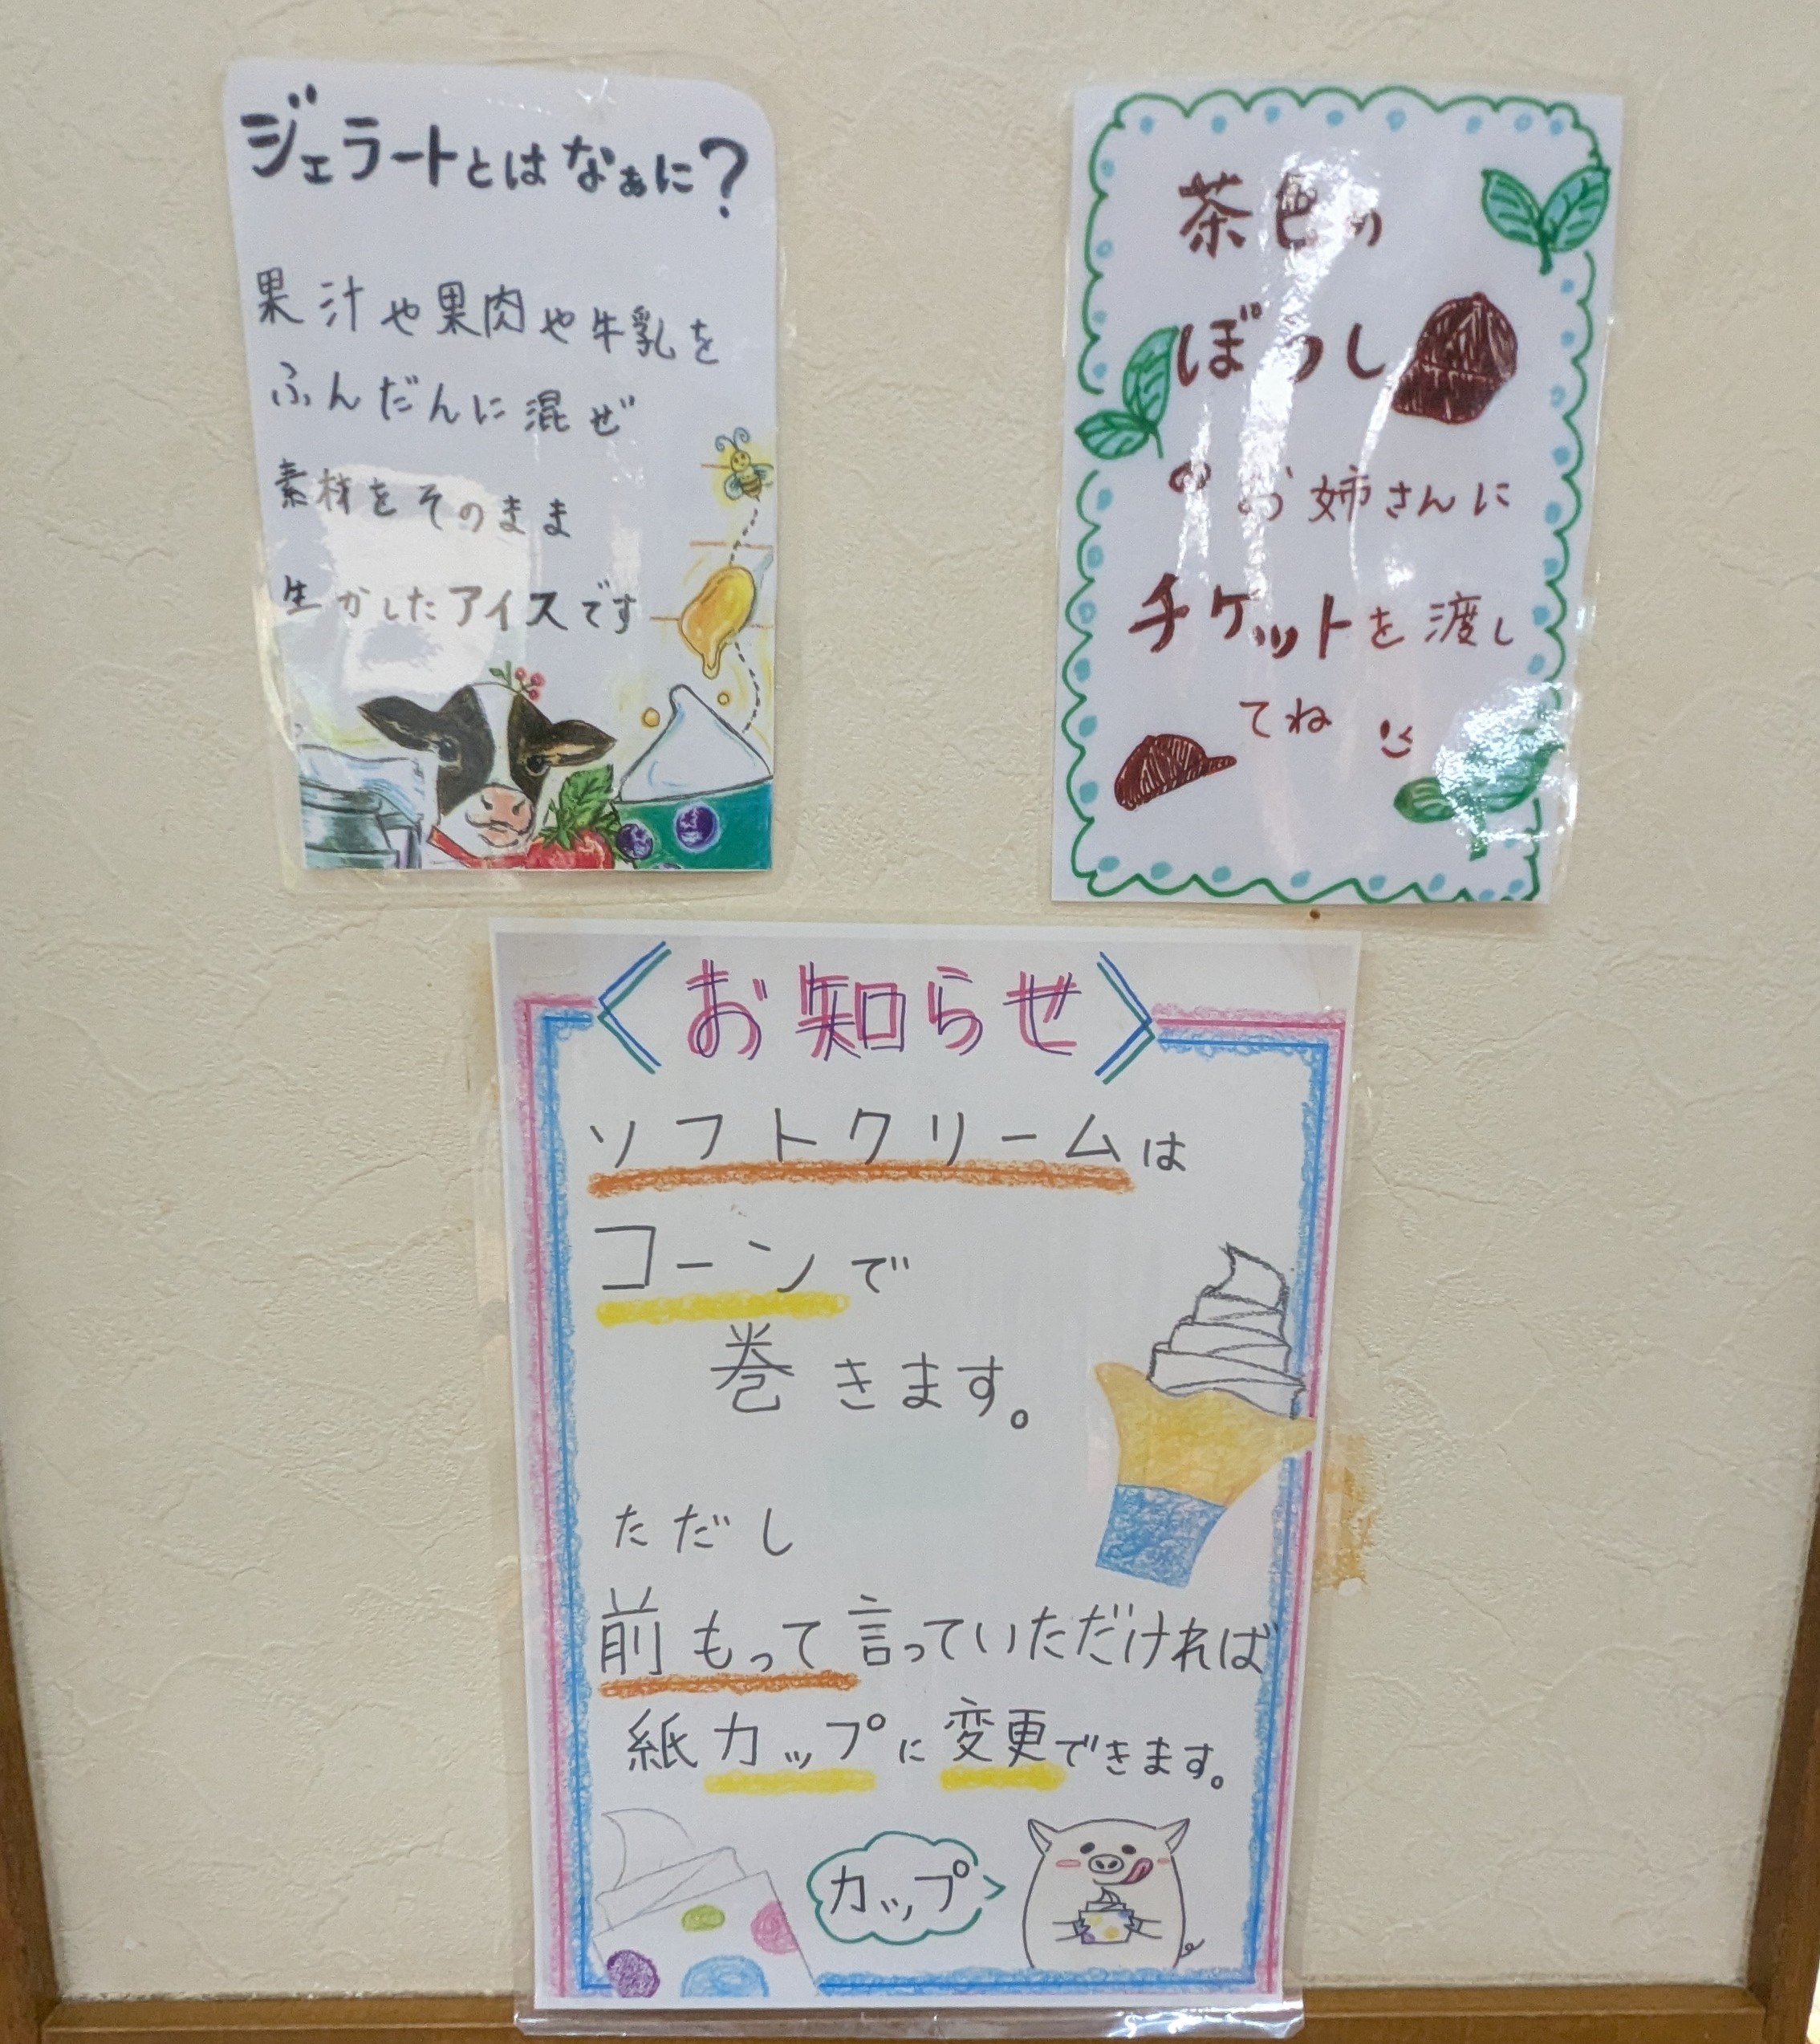 ジェラートとはなぁに?
果汁や果肉や牛乳を
ふんだんに混ぜ
素材をそのまま
生かしたアイスです
茶色の
ぼうし
のお姉さんに
チケットを渡し
てね
〈お知らせ〉
ソフトクリームは
コーンで
巻きます。
ただし
前もって言っていただければ
紙カップに変更できます。
カップ